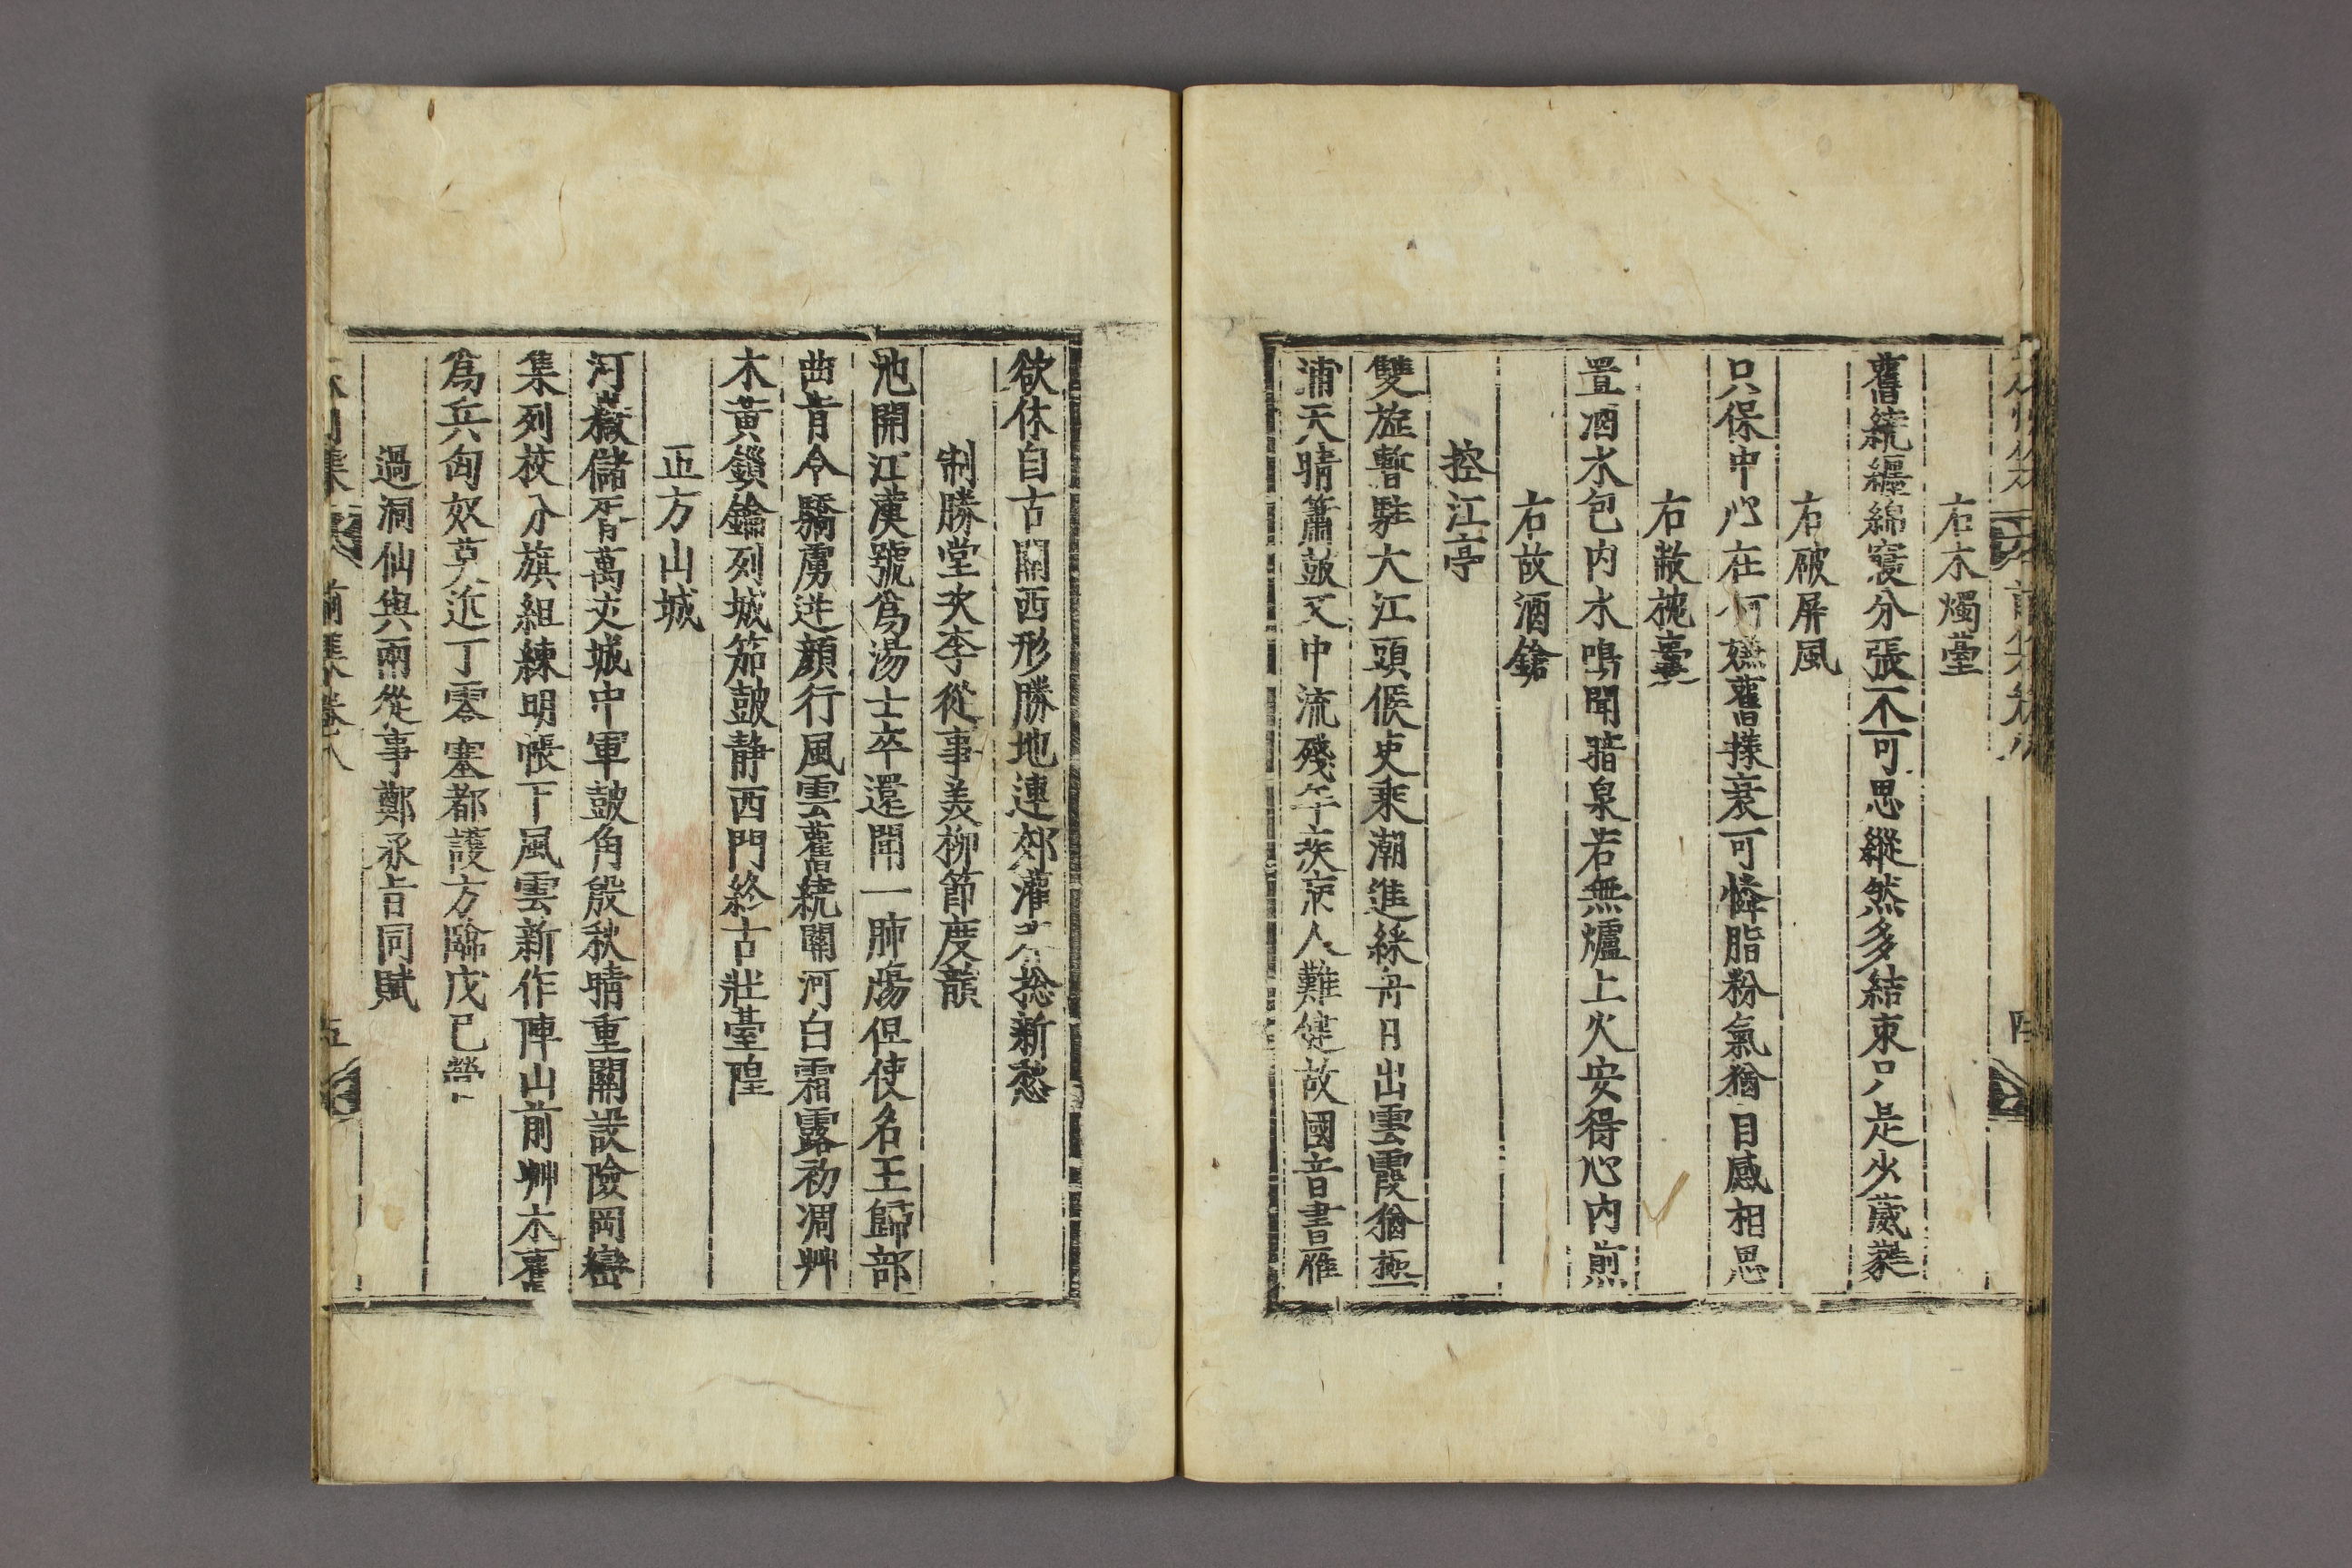 右木燭臺
舊繞纏綿寢分張不可思縱然多結束只是少葳蕤
右破屏風
只保中心在何嫌舊㨾衰可憐脂粉氣猶自感相思
右敝枕囊
置酒水包內水鳴聞暗泉若無爐上火安得心內煎
右故酒鎗
控江亭
雙旌暫駐大江頭候吏乘潮進綵舟日出雲霞猶極
浦天晴簫鼓又中流殘年疾病人難健故國音書雁
欲休自古關西形勝地連郊灌木捴新愁
制勝堂次李從事美柳節度韻
池開江漢號爲湯士卒還聞一肺膓但使名王歸部
曲肯令驕虜迸顏行風雲舊繞關河白霜露初凋艸
木黃鎖鑰列城笳鼓静西門終古壯臺隍
正方山城
河嶽儲胥萬丈城中軍鼓角殷秋晴重關設險岡巒
集列校分旗組練明帳下風雲新作陣山前艸木舊
爲兵匈奴莫近丁零塞都護方臨戊己營
過洞仙與兩從事鄭承旨同賦
前集卷八
五